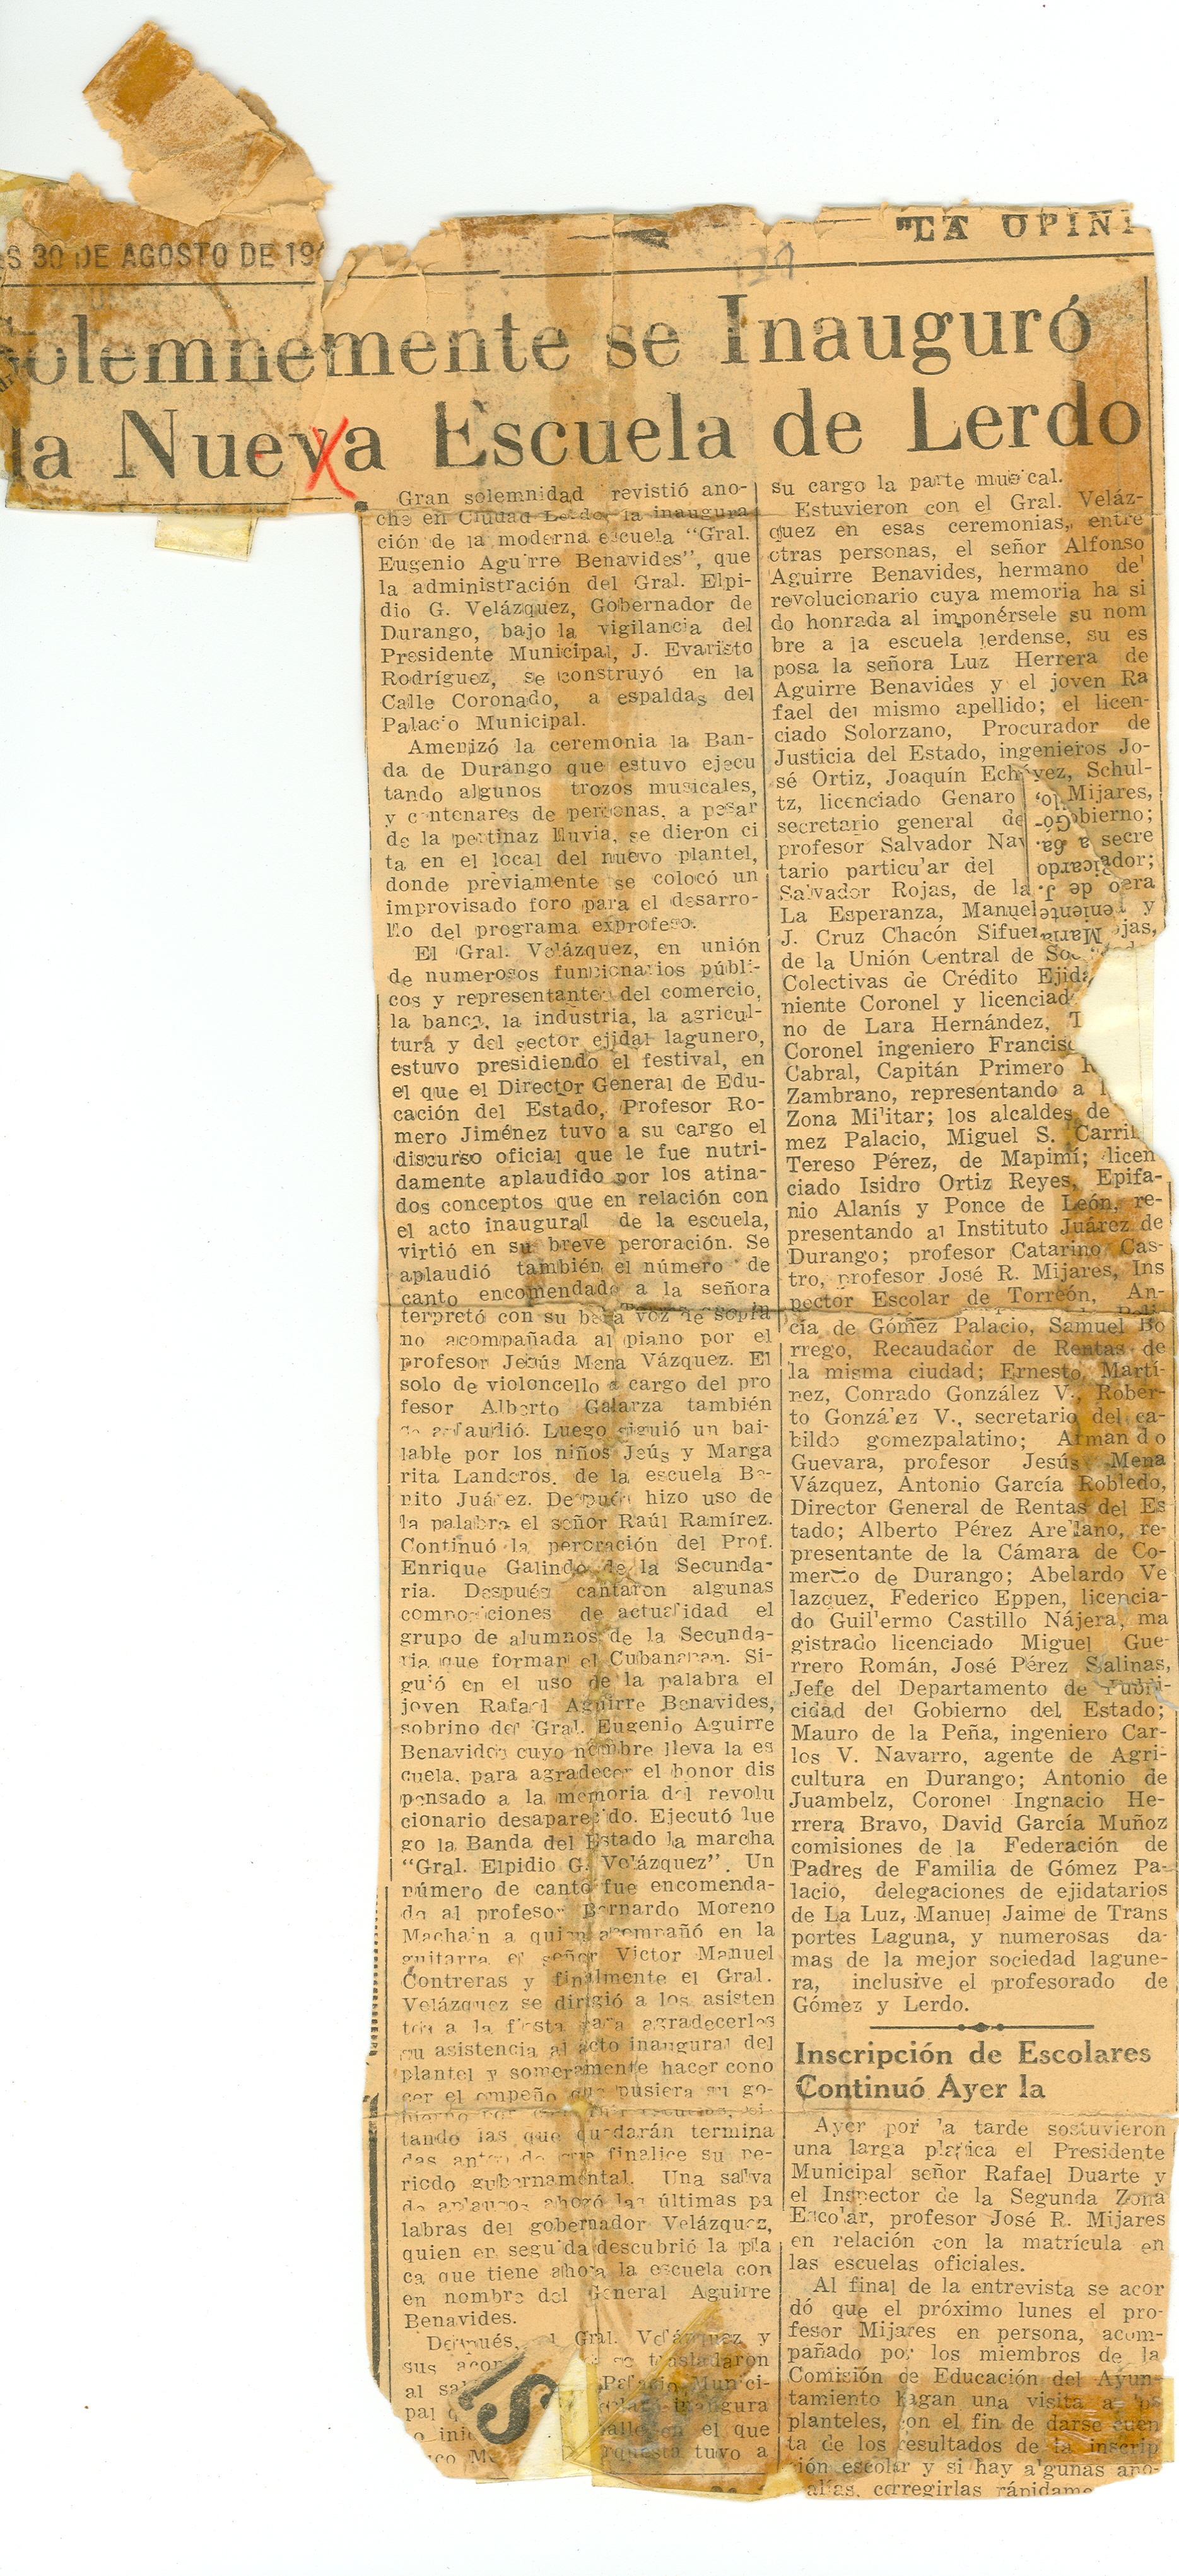 S 30 DE AGOSTO DE 19
"LA OPINI
Solemnemente se Inauguró
la Nueva Escuela de Lerdo
Gran solemnidad revistió ano-
che en Ciudad Lerdo la inaugura
ción de la moderna escuela "Gral.
Eugenio Aguirre Benavides", que
la administración del Gral. Elpi-
dio G. Velázquez, Gobernador de
Durango, bajo la vigilancia del
Presidente Municipal, J. Evaristo
Rodríguez, se construyó en la
Calle Coronado, a espaldas del
Palacio Municipal.
Amenizó la ceremonia la Ban-
da de Durango que estuvo ejecu
tando algunos trozos musicales,
y centenares de personas, a pesar
de la pertinaz lluvia, se dieron ci
ta en el local del nuevo plantel,
donde previamente se colocó un
improvisado foro para el desarro-
llo del programa exprofeso.
El Gral. Velázquez, en unión
de numerosos funcionarios públi-
cos y representantes del comercio,
la banca, la industria, la agricul-
tura y del sector ejidal lagunero,
estuvo presidiendo el festival, en
el que el Director General de Edu-
cación del Estado, Profesor Ro-
mero Jiménez tuvo a su cargo el
discurso oficial que le fue nutri-
damente aplaudido por los atina-
dos conceptos que en relación con
el acto inaugural de la escuela,
virtió en su breve peroración. Se
aplaudió también el número de
canto encomendado a la señora
terpretó con su bella voz de sopra
no acompañada al piano por el
profesor Jesús Mena Vázquez. El
solo de violoncello a cargo del pro
fesor Alberto Galarza también
se aplaudió. Luego siguió un bai-
lable por los niños Jeús y Marga
rita Landeros, de la escuela Be-
nito Juárez. Después hizo uso de
la palabra el señor Raúl Ramírez.
Continuó la peroración del Prof.
Enrique Galindo de la Secunda-
ria. Después cantaron algunas
composiciones de actualidad el
grupo de alumnos de la Secunda-
ria que forman el Cubanacan. Si-
guió en el uso de la palabra el
joven Rafael Aguirre Benavides,
sobrino del Gral. Eugenio Aguirre
Benavides cuyo nombre lleva la es
cuela, para agradecer el honor dis
pensado a la memoria del revolu
cionario desaparecido. Ejecutó lue
go la Banda del Estado la marcha
"Gral. Elpidio G. Velázquez". Un
número de canto fue encomenda-
do al profesor Bernardo Moreno
Machain a quien acompañó en la
guitarra el señor Victor Manuel
Contreras y finalmente el Gral.
Velázquez se dirigió a los asisten
tes a la fiesta para agradecerles
su asistencia al acto inaugural del
plantel y someramente hacer cono
cer el empeño que pusiera su go-
bierno por
tando las que quedarán termina
das antes de que finalice su pe-
riodo gubernamental. Una salva
de aplausos ahogó las últimas pa
labras del gobernador Velázquez,
quien en seguida descubrió la pla
ca que tiene ahora la escuela con
en nombre del General Aguirre
Benavides.
Después, el Gral. Velázquez y
sus acom se trasladaron
al sa Palacio Munici-
pal inaugura
el que
orquesta tuvo a
su cargo la parte musical.
Estuvieron con el Gral. Veláz-
quez en esas ceremonias, entre
otras personas, el señor Alfonso
Aguirre Benavides, hermano del
revolucionario cuya memoria ha si
do honrada al imponérsele su nom
bre a la escuela lerdense, su es
posa la señora Luz Herrera de
Aguirre Benavides y el joven Ra
fael del mismo apellido; el licen-
ciado Solorzano, Procurador de
Justicia del Estado, ingenieros Jo-
sé Ortiz, Joaquín Echávez, Schul-
tz, licenciado Genaro Mijares,
secretario general de Gobierno;
profesor Salvador Nav secre
tario particular del
Salvador Rojas, de la
La Esperanza, Manuel y
J. Cruz Chacón Sifuen
de la Unión Central de Soc
Colectivas de Crédito Ejida
niente Coronel y licenciad
no de Lara Hernández, T
Coronel ingeniero Francisc
Cabral, Capitán Primero
Zambrano, representando a l
Zona Militar; los alcaldes de
mez Palacio, Miguel S. Carril
Tereso Pérez, de Mapimí; licen
ciado Isidro Ortiz Reyes, Epifa-
nio Alanís y Ponce de León, re-
presentando al Instituto Juárez de
Durango; profesor Catarino Cas-
tro, profesor José R. Mijares, Ins
pector Escolar de Torreón, An-
cía de Gómez Palacio, Samuel Bo
rrego, Recaudador de Rentas de
la misma ciudad; Ernesto Martí-
nez, Conrado González V., Rober-
to González V., secretario del ca-
bildo gomezpalatino; Armando
Guevara, profesor Jesús Mena
Vázquez, Antonio García Robledo,
Director General de Rentas del Es
tado; Alberto Pérez Arellano, re-
presentante de la Cámara de Co-
mercio de Durango; Abelardo Ve
lazquez, Federico Eppen, licencia-
do Guillermo Castillo Nájera, ma
gistrado licenciado Miguel Gue-
rrero Román, José Pérez Salinas,
Jefe del Departamento de Publi-
cidad del Gobierno del Estado;
Mauro de la Peña, ingeniero Car-
los V. Navarro, agente de Agri-
cultura en Durango; Antonio de
Juambelz, Coronel Ingnacio He-
rrera Bravo, David García Muñoz
comisiones de la Federación de
Padres de Familia de Gómez Pa-
lacio, delegaciones de ejidatarios
de La Luz, Manuel Jaime de Trans
portes Laguna, y numerosas da-
mas de la mejor sociedad lagune-
ra, inclusive el profesorado de
Gómez y Lerdo.
Inscripción de Escolares
Continuó Ayer la
Ayer por la tarde sostuvieron
una larga platica el Presidente
Municipal señor Rafael Duarte y
el Inspector de la Segunda Zona
Escolar, profesor José R. Mijares
en relación con la matrícula en
las escuelas oficiales.
Al final de la entrevista se acor
dó que el próximo lunes el pro-
fesor Mijares en persona, acom-
pañado por los miembros de la
Comisión de Educación del Ayun-
tamiento hagan una visita a los
planteles, con el fin de darse cuen
ta de los resultados de la inscrip
ción escolar y si hay algunas ano-
alías, corregirlas rápidame